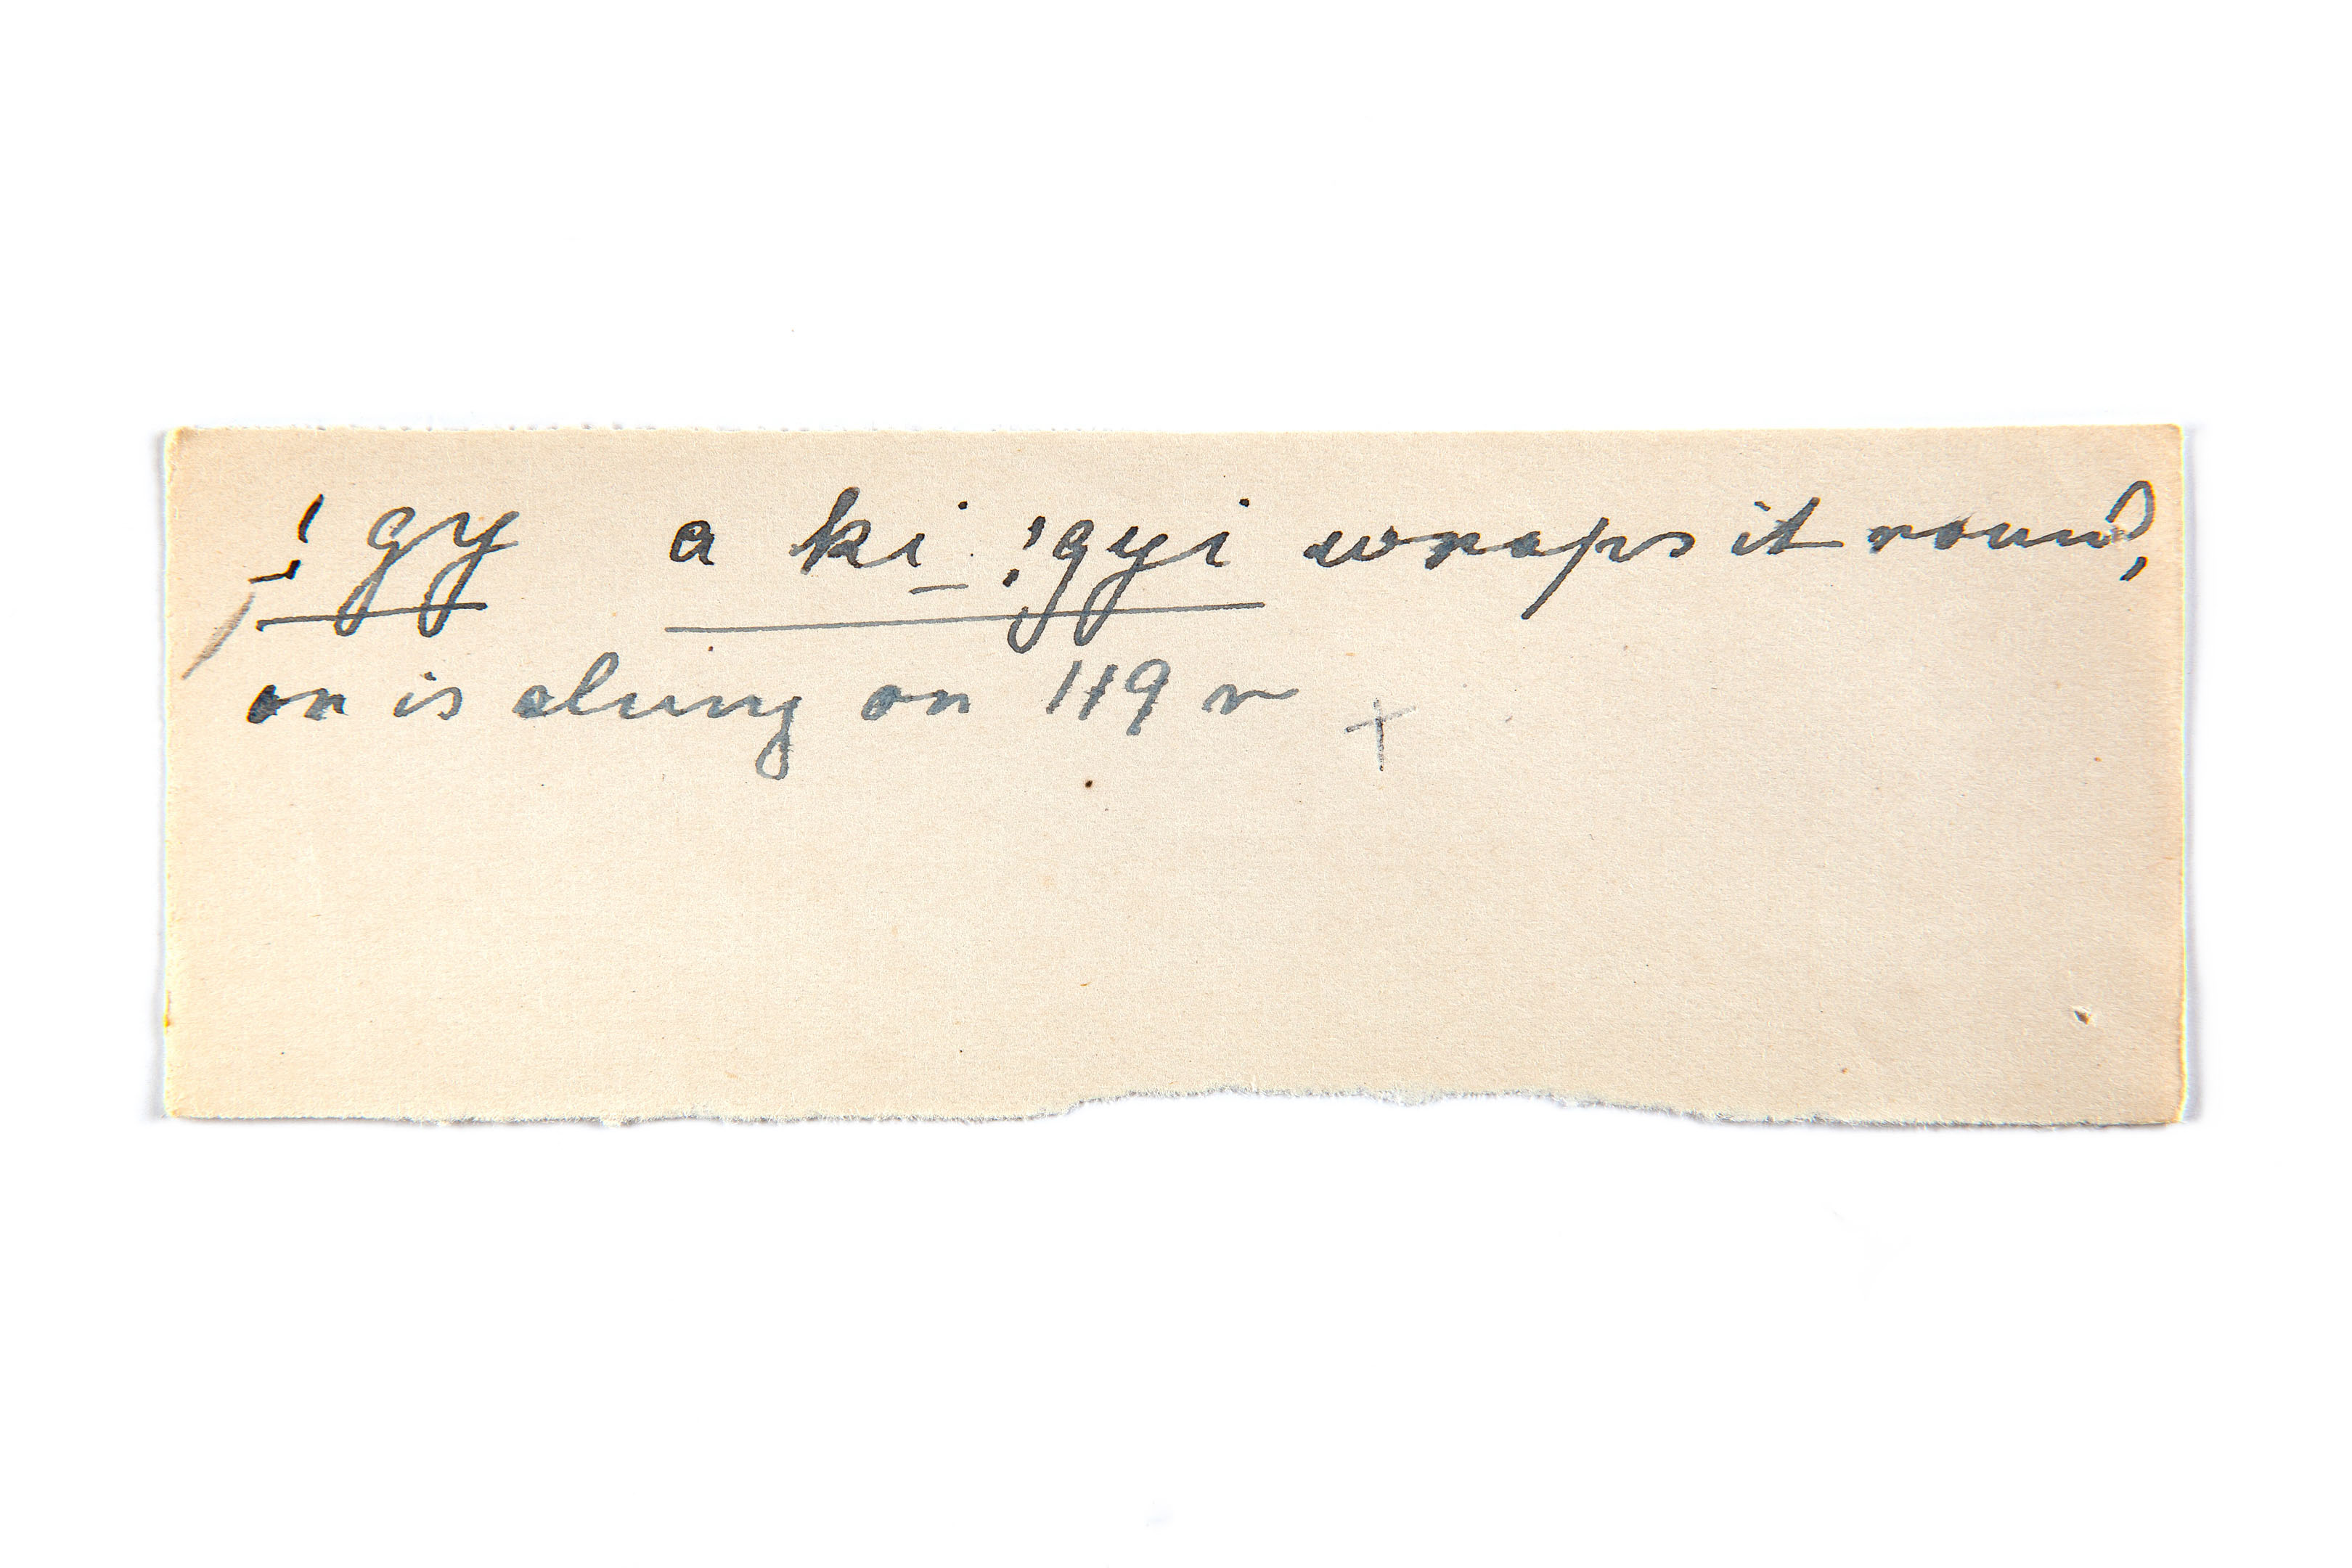 !gy a ki !gyi wraps it round,
or is slung on 119 r +